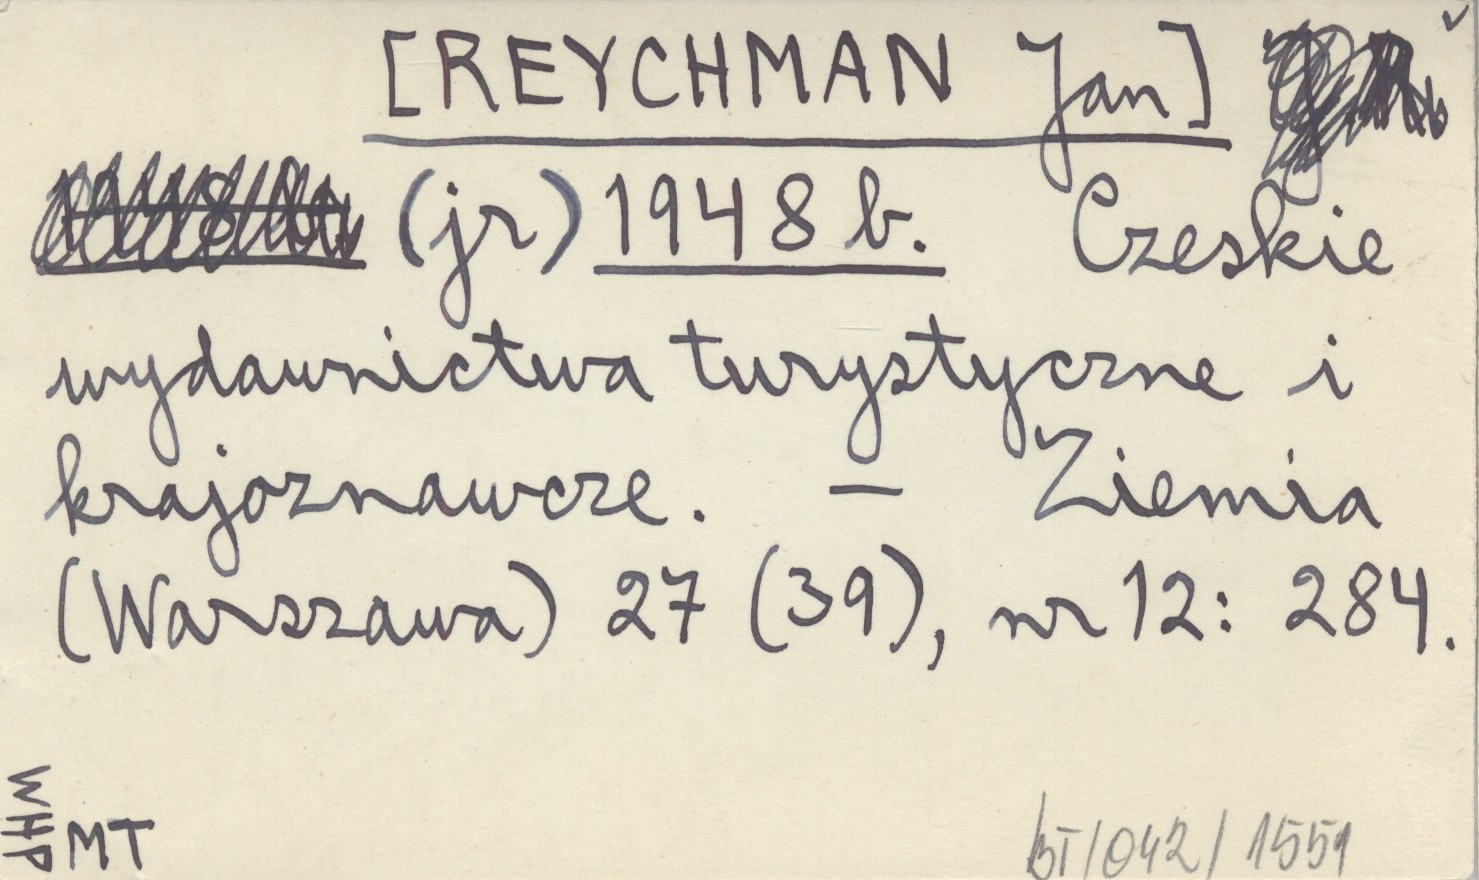 [REYCHMAN Jan]
(jr) 1948 b. Czeskie
wydawnictwa turystyczne i
krajoznawcze. — Ziemia
(Warszawa) 27 (39), nr 12: 284.
WHP
MT
BT/042/1551